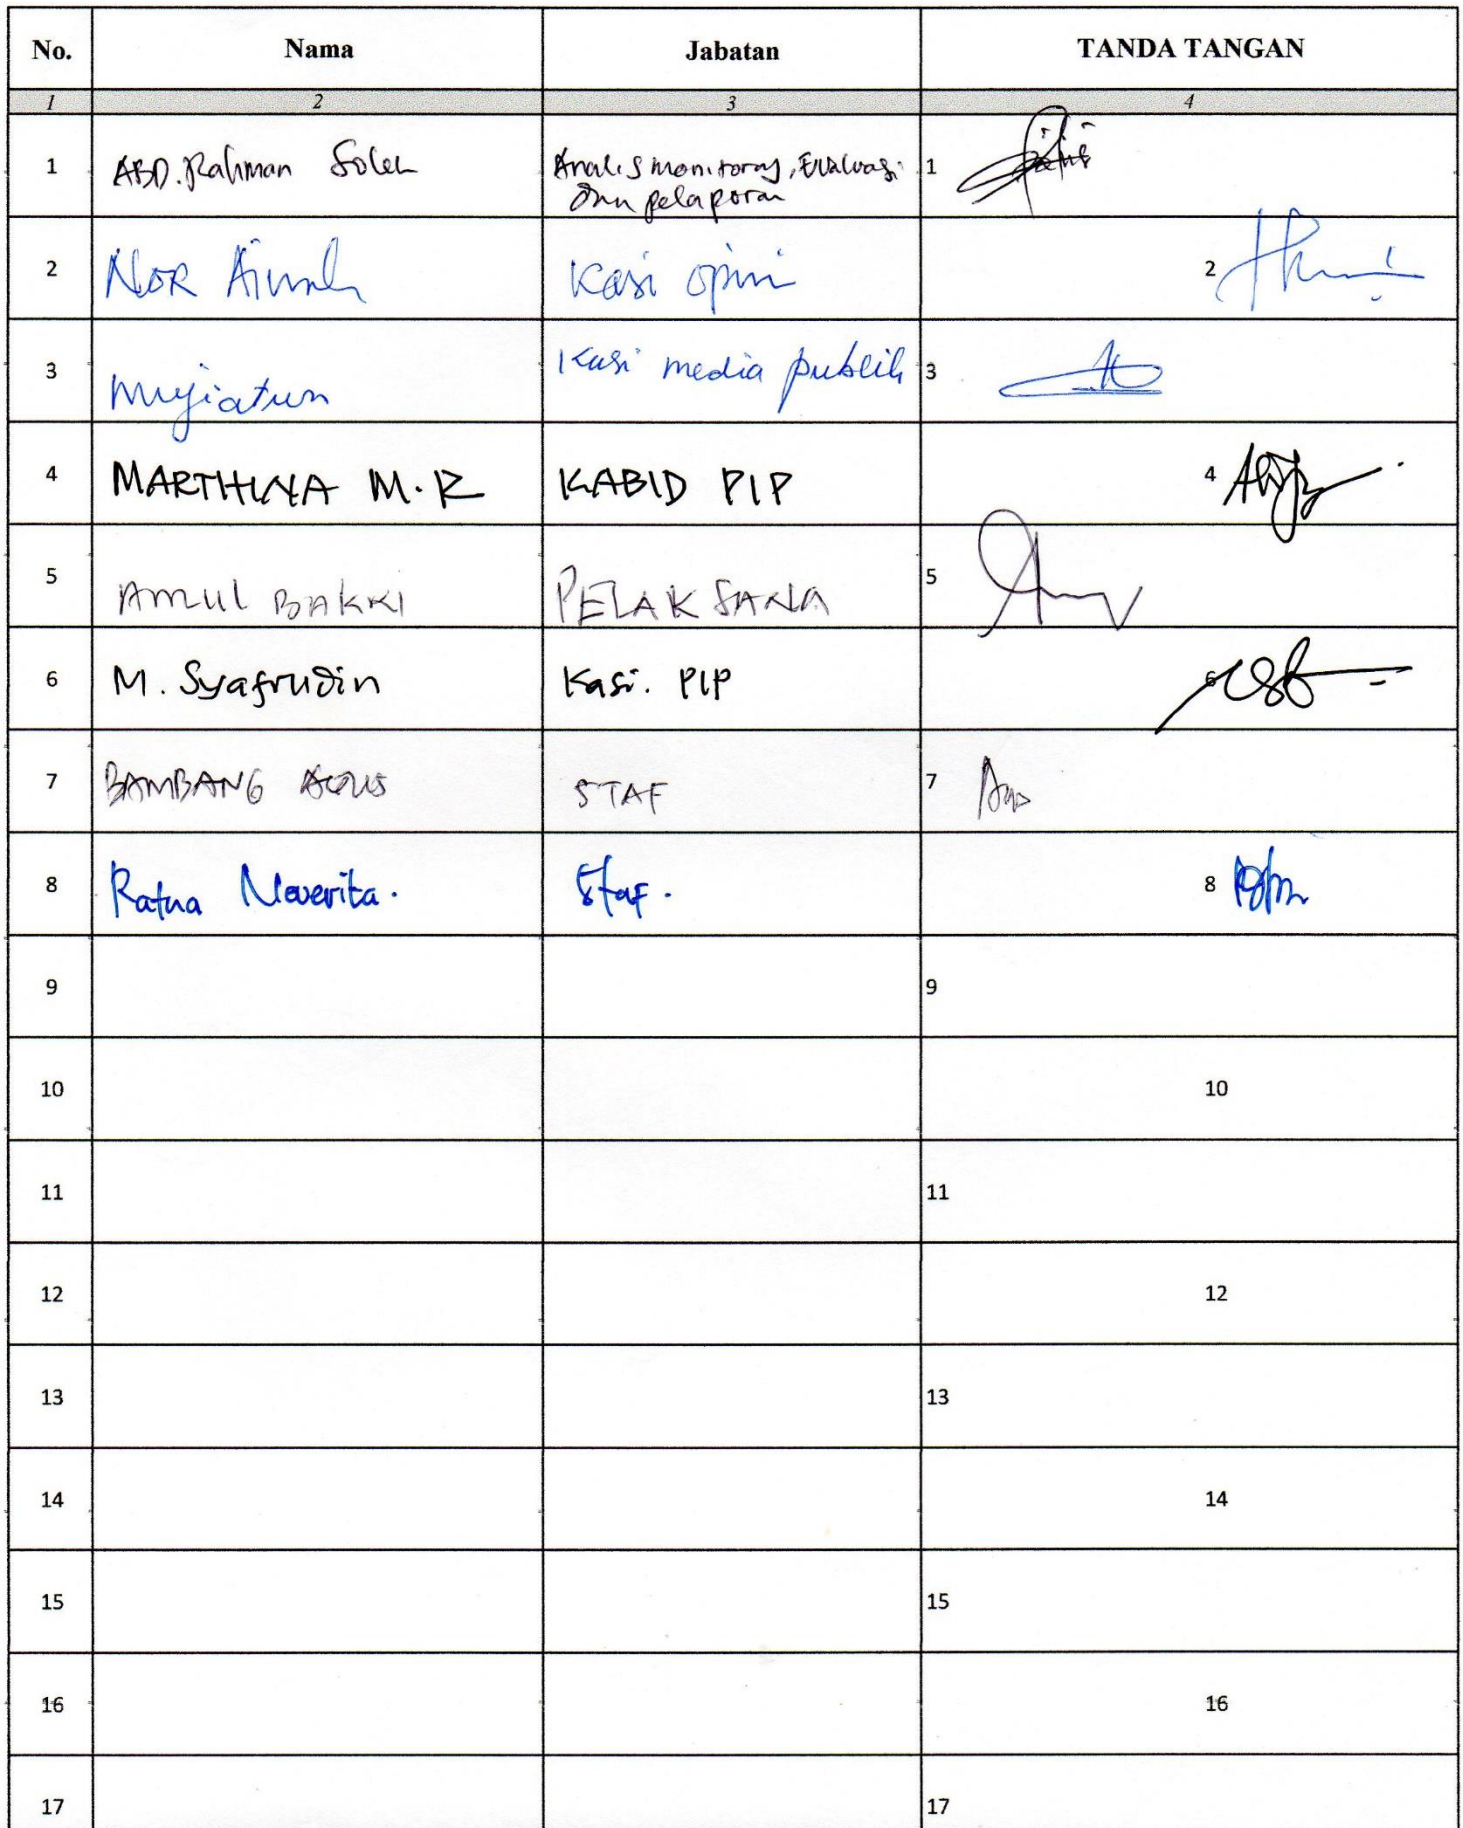 No. Nama Jabatan TANDA TANGAN
1 2 3 4
1 ABD. Rahman Soleh Analis monitoring, Evaluasi 1
dan pelaporan
2 NOR Kasi opini 2
3 Mujiatun Kasi media publik 3
4 MARTHINA M.R KABID PIP 4
5 AMRUL BAKKI PELAKSANA 5
6 M. Syafrudin Kasi. PIP 6
7 BAMBANG AGUS STAF 7
8 Ratna Noverita. Staf. 8
9 9
10 10
11 11
12 12
13 13
14 14
15 15
16 16
17 17